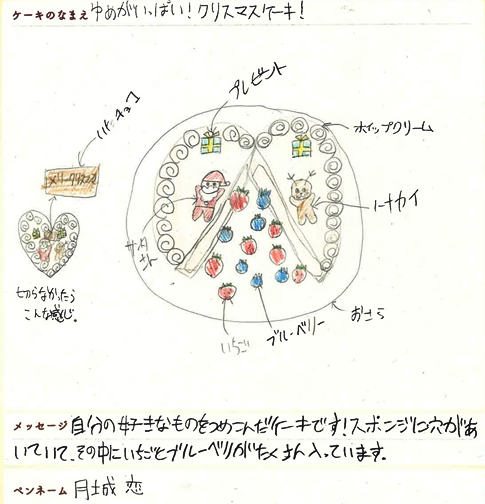 ケーキのなまえ ゆめがいっぱい!クリスマスケーキ!
プレゼント
いたチョコ
ホイップクリーム
メリークリスマス
トナカイ
サンタ
さん
切らなかったら
こんな感じ。
おさら
いちご
ブルーベリー
メッセージ 自分の好きなものをつめこんだケーキです!スポンジに穴があ
いていて、その中にいちごとブルーベリーがたくさん入っています。
ペンネーム 月城 恋